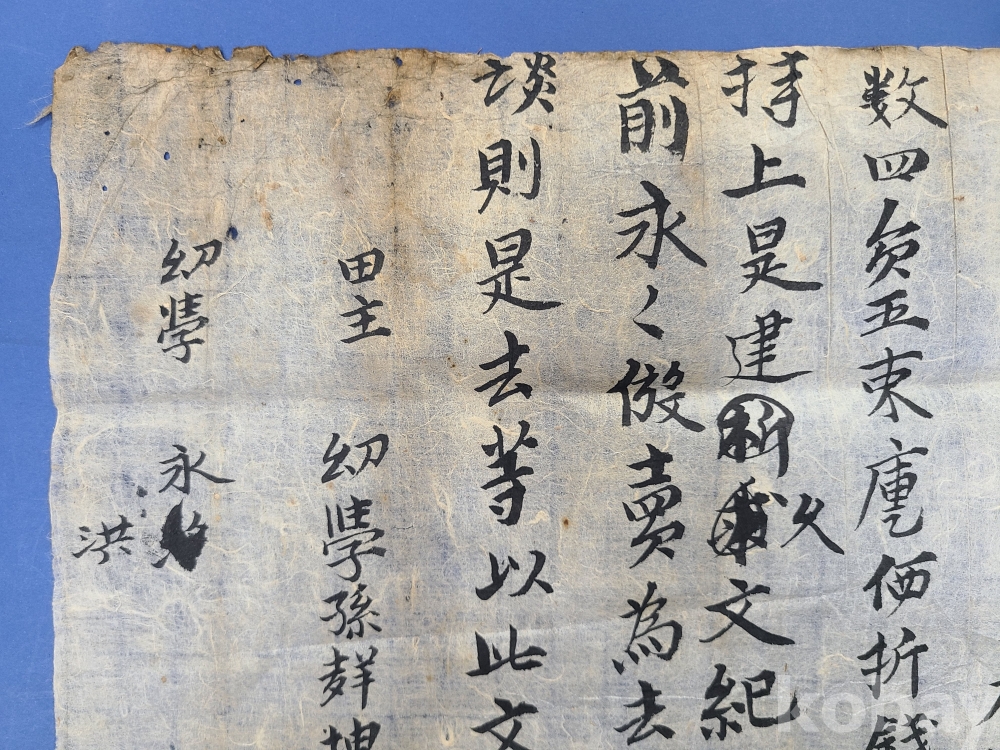 数四負五束庫価折錢
捧上是建新文紀
前永々放賣為去
談則是去等以此文
田主 幼學孫
幼學 永
洪
kobay